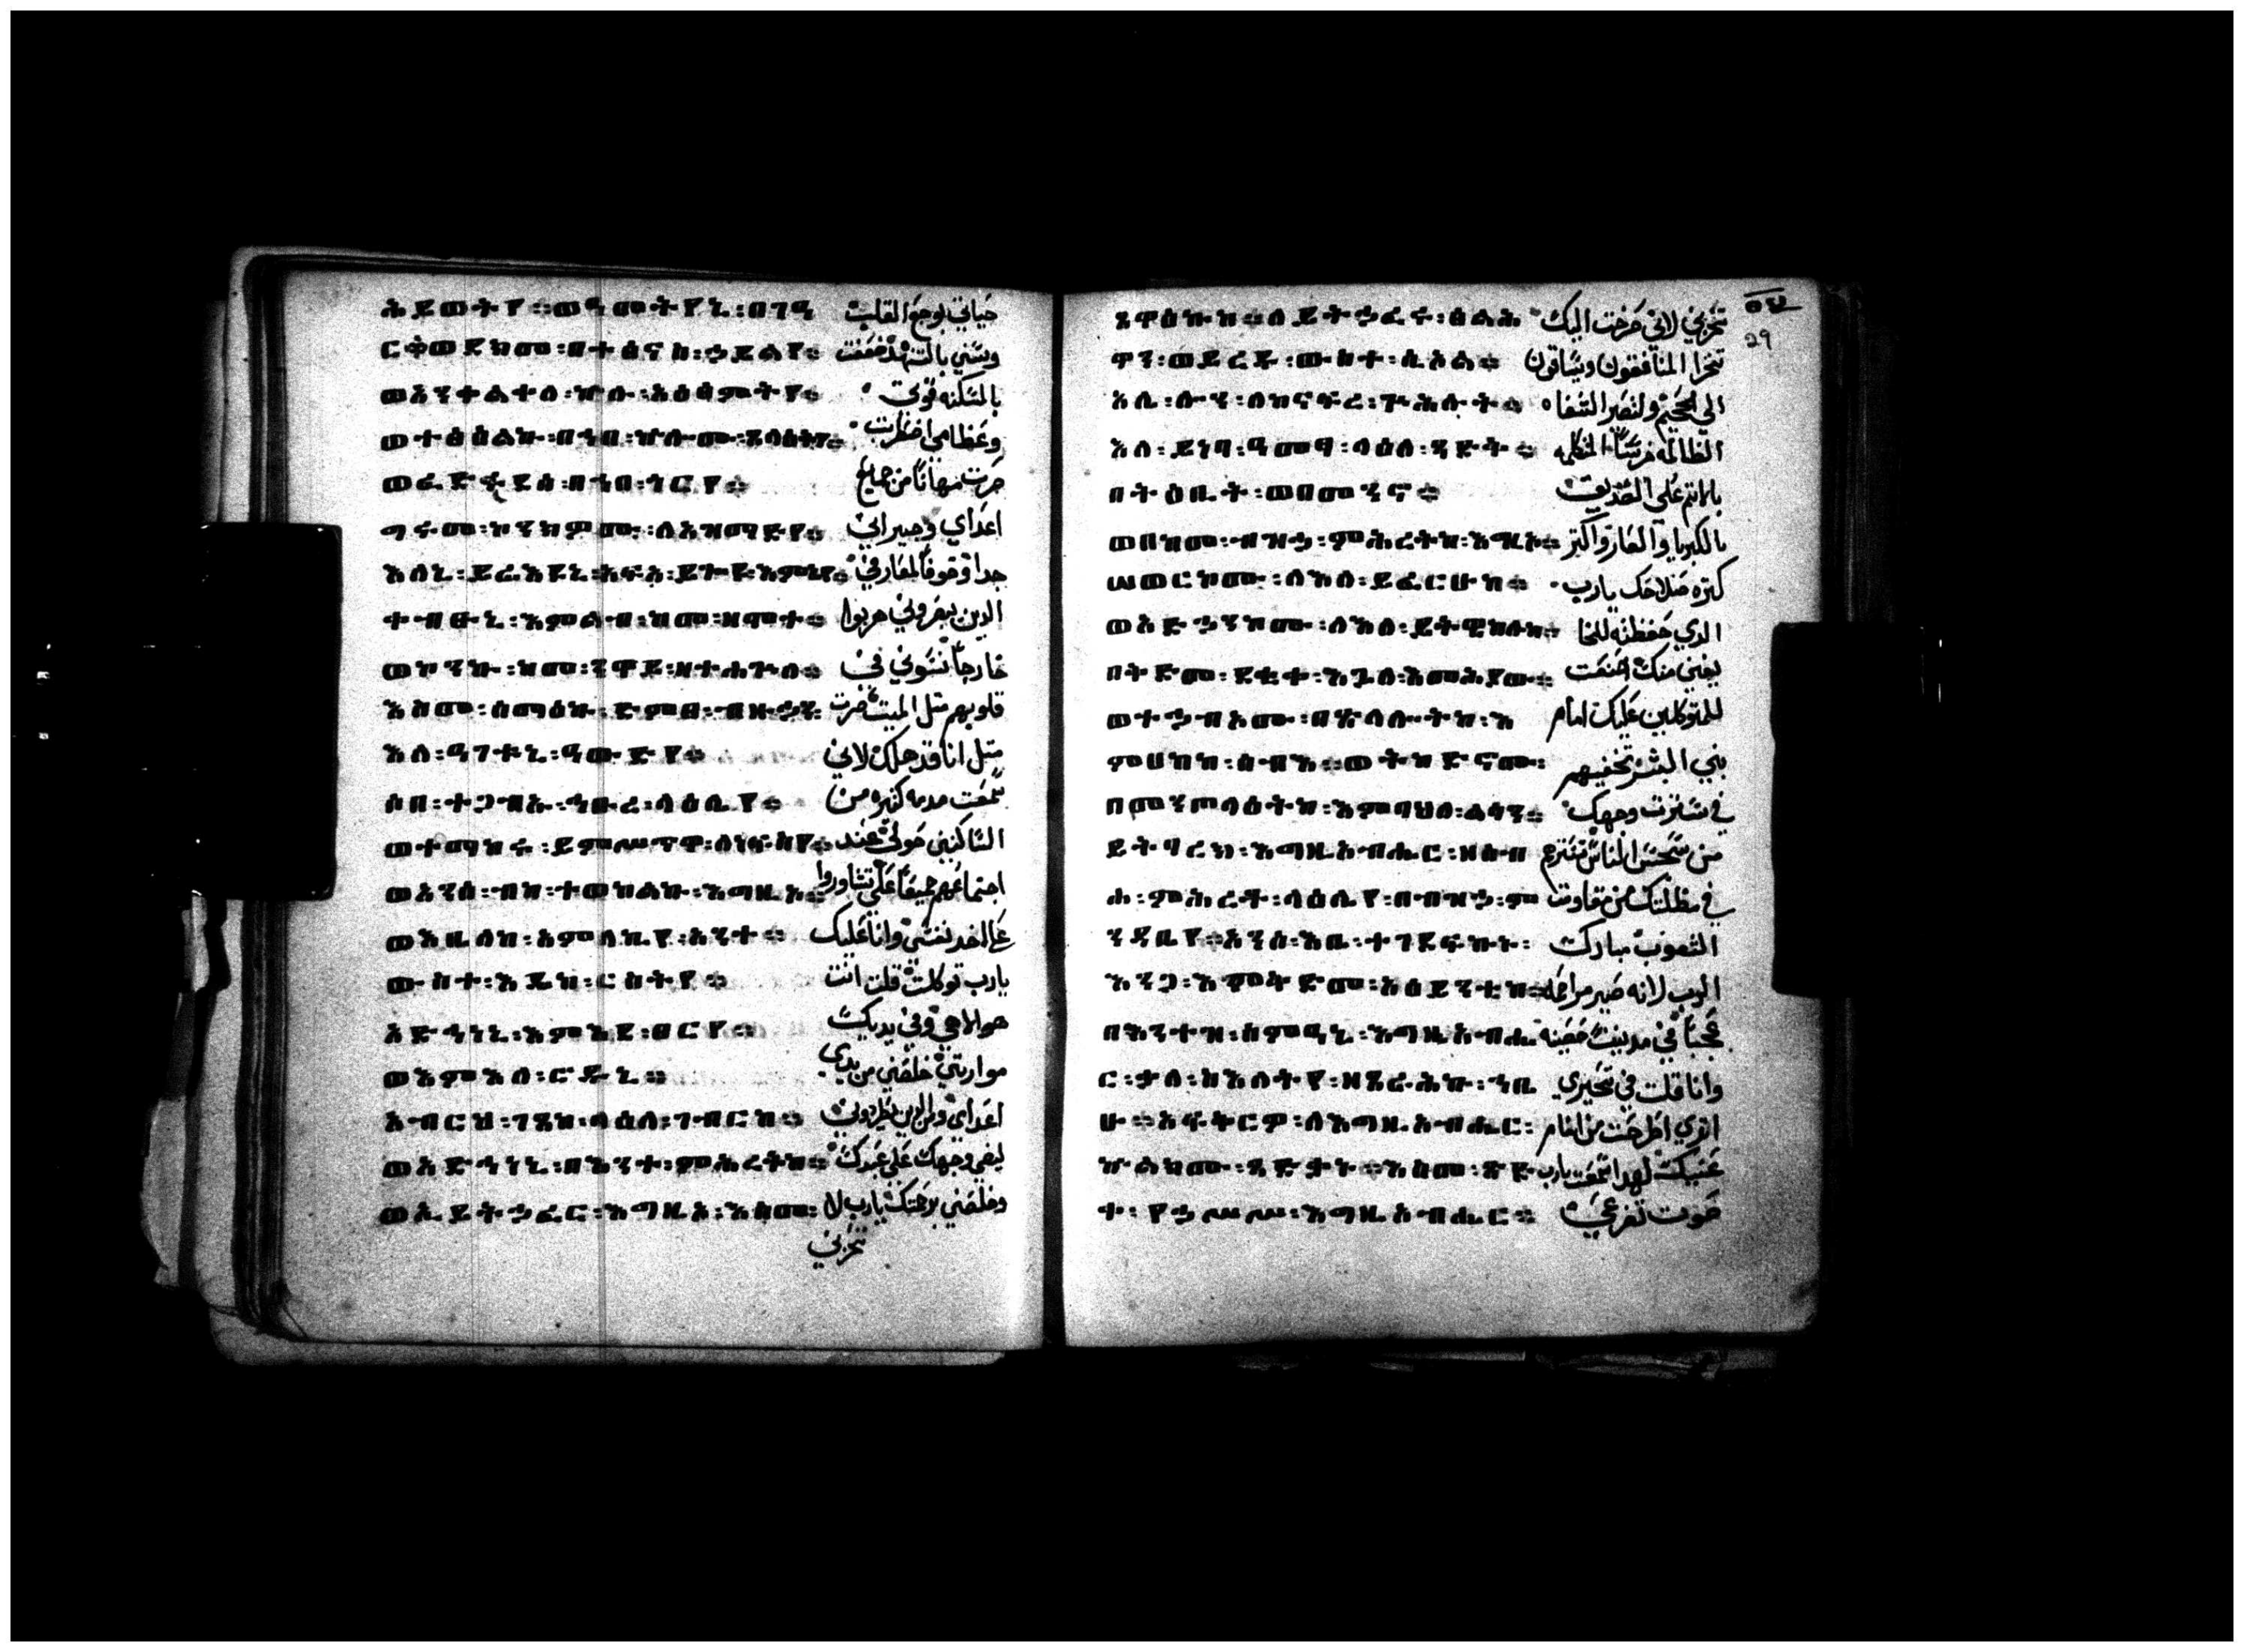 ሕይወትየ ። ወዓመትየኒ : በገዓ حياتي بوجع القلب
ርቶወደክመ : በተፅናስ : ኃይልየ ። وسني بالتنهد ضعفت
ወአንቀልቀለ : ኵሉ : አዕፅምትየ ። بالمسكنه قوتي
ወተፅዕልኩ : በኀበ : ኵሎሙ : ጸላዕትየ ። وعظامي اضطربت
ወፈድፋደሰ : በኀበ : ጎርየ ። صرت مهانا من جميع
ግሩመ : ኮንክምሙ : ለአዝማድየ ። اعداي وجيراني
እለኒ : ይሬእዩኒ : አፍአ : ይጐዩ : እምኔየ ። جدا وخوفا لمعارفي
ተረስዑኒ : እምልብ : ከመ : ዘሞተ ። الدين يبصروني هربوا
ወኮንኩ : ከመ : ንዋይ : ዘተሐጕለ ። خارجا نسوني في
እስመ : ሰማዕኩ : ድምፀ : ብዙኃን : قلوبهم متل الميت صرت
እለ : ዓገቱኒ : ዓውድየ ። متل انا قد هلك لاني
ሶበ : ተጋብኡ : ኅቡረ : ላዕሌየ ። سمعت مدمه كتيره من
ወተማከሩ : ይምሥጥዋ : ለነፍስየ ። الساكنين حولي عند
ወአንሰ : ብከ : ተወከልኩ : እግዚኦ ። اجتماعهم جميعا علي تشاوروا
ወእቤለከ : አምላኪየ : አንተ ። علي اخد نفسي وانا عليك
ውስተ : እዴከ : ርስትየ ። يارب توكلت قلت انت
አድኅነኒ : እምእደ : ፀርየ ። هو الاهي وفي يديك
ወእምእለ : ሮዱኒ ። مواريتي خلصني من يدي
አብርህ : ገጸከ : ላዕለ : ገብርከ ። اعداي ومن الدين يطردوني
ወአድኅነኒ : በእንተ : ምሕረትከ ። ليضي وجهك علي عبدك
ወኢይትኃፈር : እግዚኦ : እስመ : وخلصني برحمتك يارب لا
تخزيني
፴፱
29
ጸዋዕኩከ ። ለይትኃፈሩ : ፅልሕ تخزيني لاني صرخت اليك
ዋን : ወይረዱ : ውስተ : ሲኦል ። تخزا المنافقون ويساقون
አሌ : ሎን : ለከናፍረ : ጕሕሉት ። الي الجحيم ولتصير الشفاه
እለ : ይነባ : ዓመፃ : ላዕለ : ጻድቅ ። الظالمه خرسا المتكلمه
በትዕቢት : ወበመንኖ ። بالاتم علي الصديق
ወበከመ : ብዝኃ : ምሕረትከ : እግዚኦ ። بالكبريا والعار واكتر
ሠወርኮሙ : ለእለ : ይፈርሁከ ። كتره صلاحك يارب
ወአድኃንኮሙ : ለእለ : ይትዌከሉከ ። الدي حفظته للخا
በቅድመ : ደቂቀ : እጓለ : እመሕያው ። يفين منك اصنعت
ወተኃብኦሙ : በጽላሎትከ : እ للمتوكلين عليك امام
ምሀከከ : ሰብእ ። ወትከድኖሙ : بني البشر تخفيهم
በመንጦላዕትከ : እምባህለ : ልሳን ። في ستر وجهك
ይትባረክ : እግዚአብሔር : ዘሰብ من سجس الناس تسترهم
ሐ : ምሕረቶ : ላዕሌየ : በብዝኃ : ም في مظلتك من مقاومت
ንዳቤየ ። አንሰ : እቤ : ተገደፍኩኑ : الشعوب مبارك
እንጋ : እምቅድመ : አዕይንቲከ ። الرب لانه صير مراحمه
በእንተዝ : ሰምዓኒ : እግዚአብሔ عجبا في مدينت حصينه
ር : ቃለ : ስእለትየ : ዘጸራሕኩ : ኀቤ وانا قلت في تحيري
ሁ ። አፍቅርዎ : ለእግዚአብሔር : انني اطرحت من امام
ኵልክሙ : ጻድቃኑ ። እስመ : ጽድ عينيك لهدا سمعت يارب
ቀ : የኃሥሥ : እግዚአብሔር ። صوت تضرعي